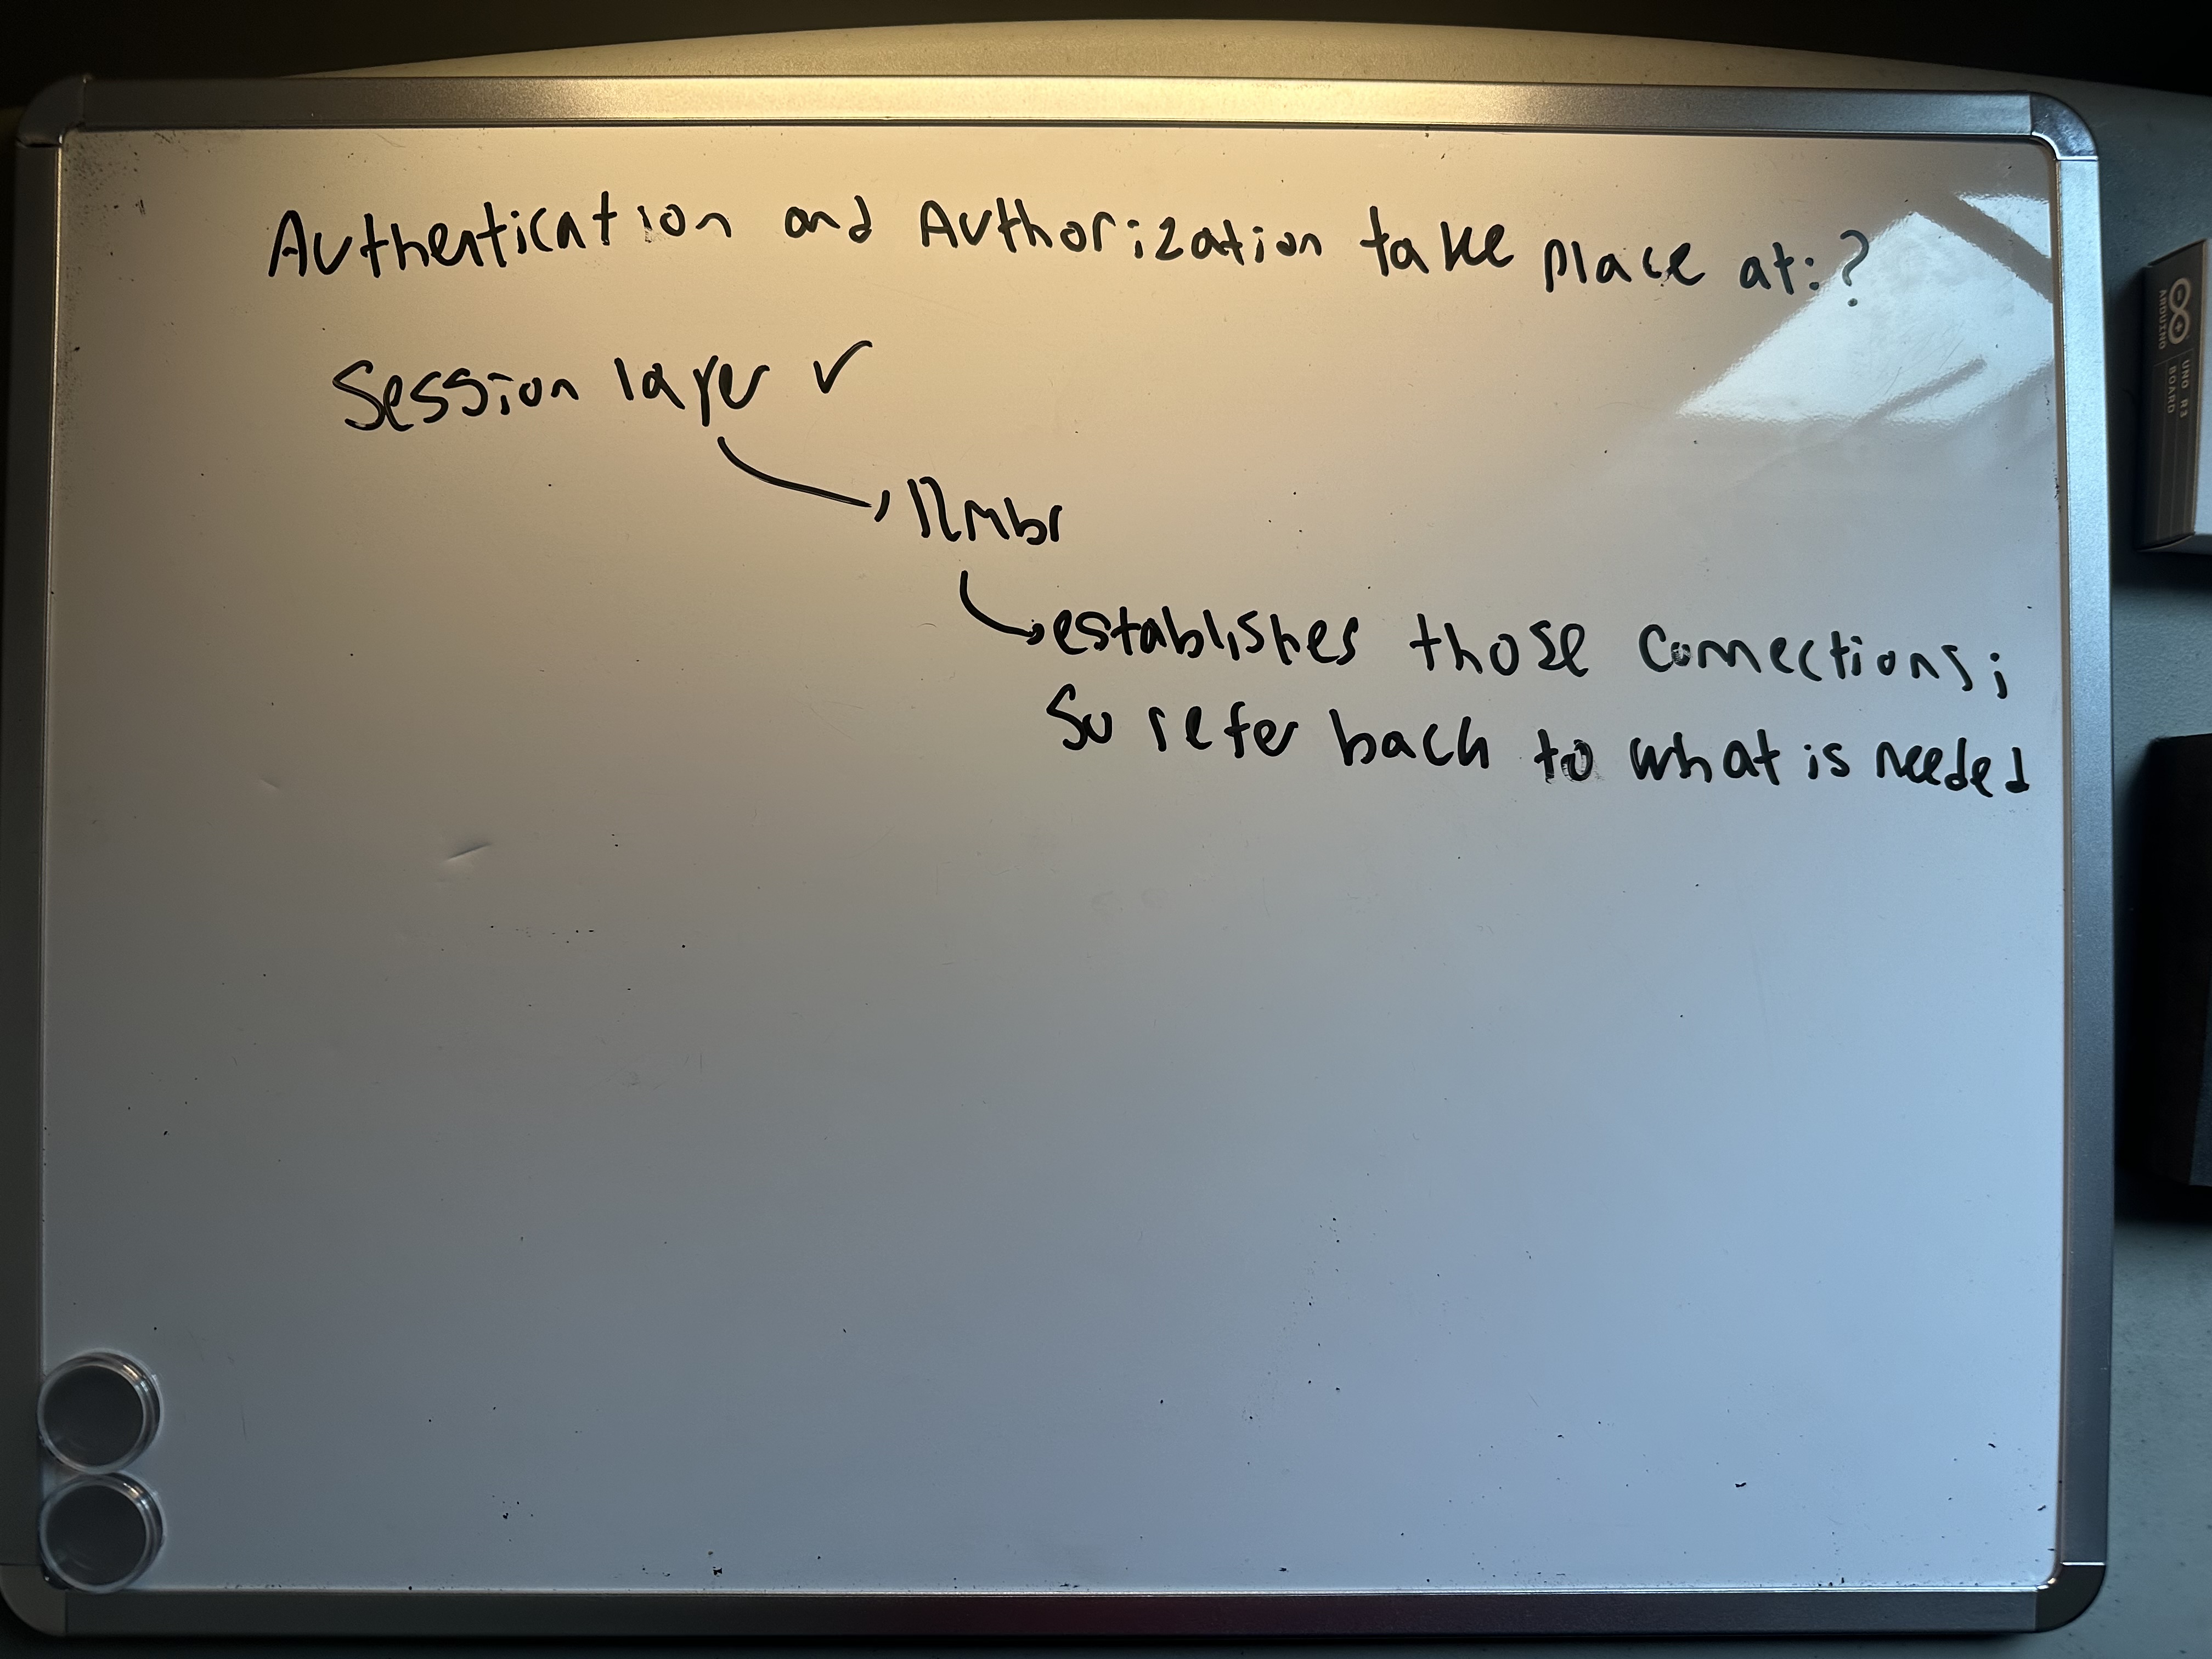 Authentication and Authorization take place at:?
Session layer ✓
Rmbr
establishes those connections;
So refer back to what is needed
ARDUINO
UNO R3
BOARD